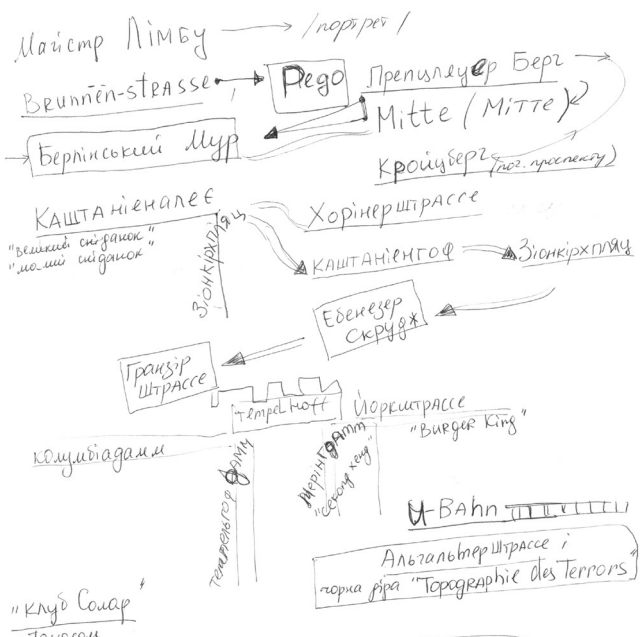 Майстр Лімбу
/портрет/
Brunnen-strasse
Педо
Препцляуер Берг
Mitte (Мітте)
Берлінський Мур
Кройцберг (поч. проспекту)
Каштаніеналеє
"великий сніданок"
"малий сніданок"
Зіонкірхпляц
Хорінерштрассе
Каштаніенгоф
Зіонкірхпляц
Ебенезер
Скрудж
Гранзір
Штрассе
Tempelhoff
Йоркштрассе
"Burger King"
колумбіадамм
Темпельгоф дамм
Мерінгдамм
"секонд хенд"
U-Bahn
Альгальтер штрассе і
чорна діра "Topographie des Terrors"
"Клуб Солар"